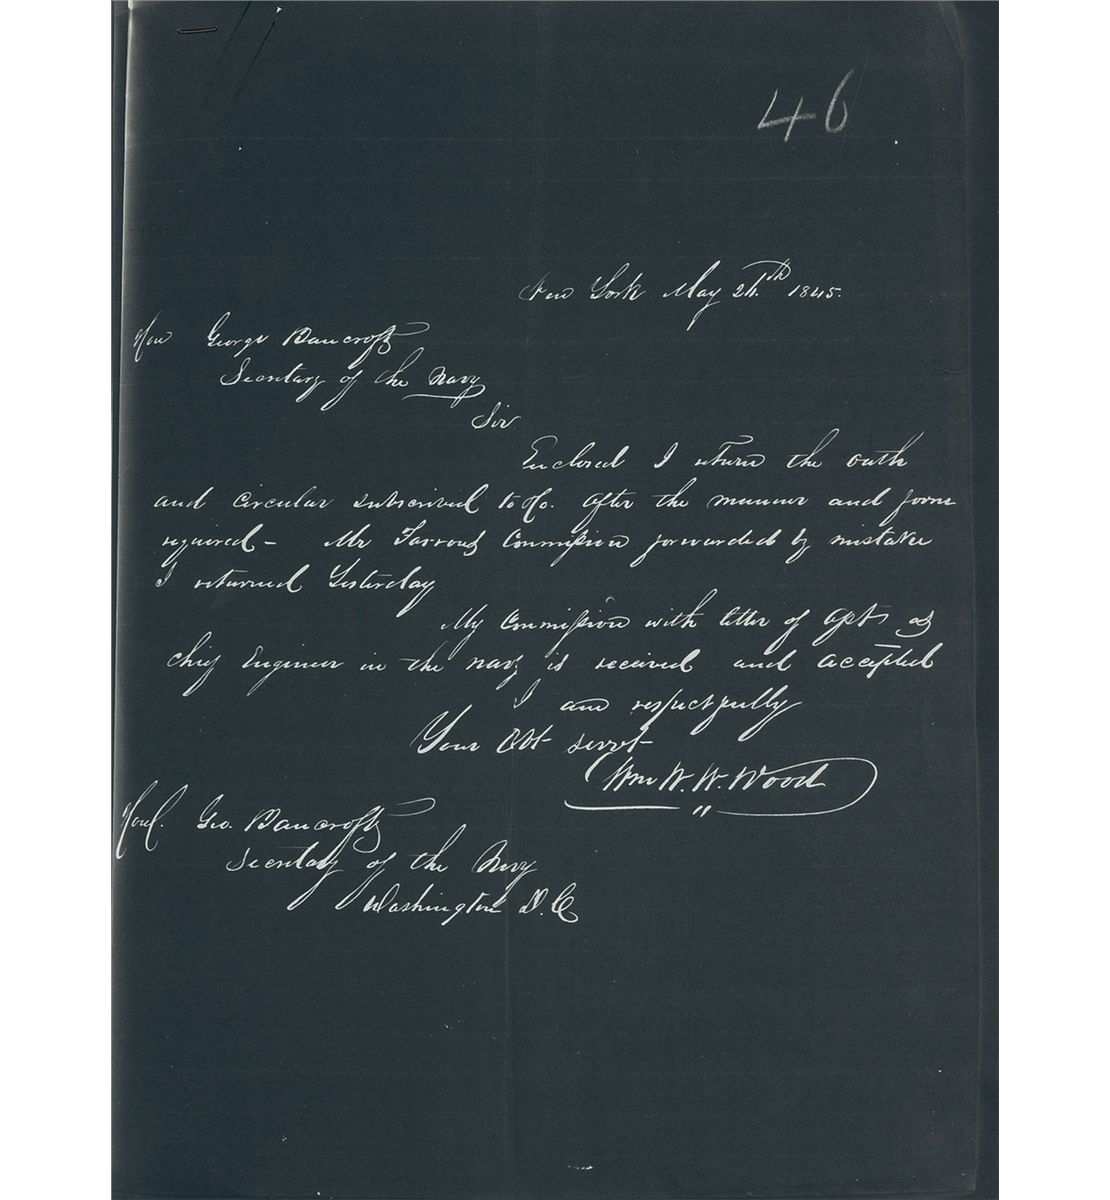 46
New York May 24th 1845.
Hon George Bancroft
Secretary of the Navy
Sir
Enclosed I return the oath
and circular subscribed to &c. after the manner and form
required - Mr Commission forwarded by mistake
I returned Yesterday
My commission with letter of apt as
chief Engineer in the navy is received and accepted
I am respectfully
Your Obt servt
Wm W. W. Wood
Honl. Geo. Bancroft
Secretary of the Navy
Washington D.C